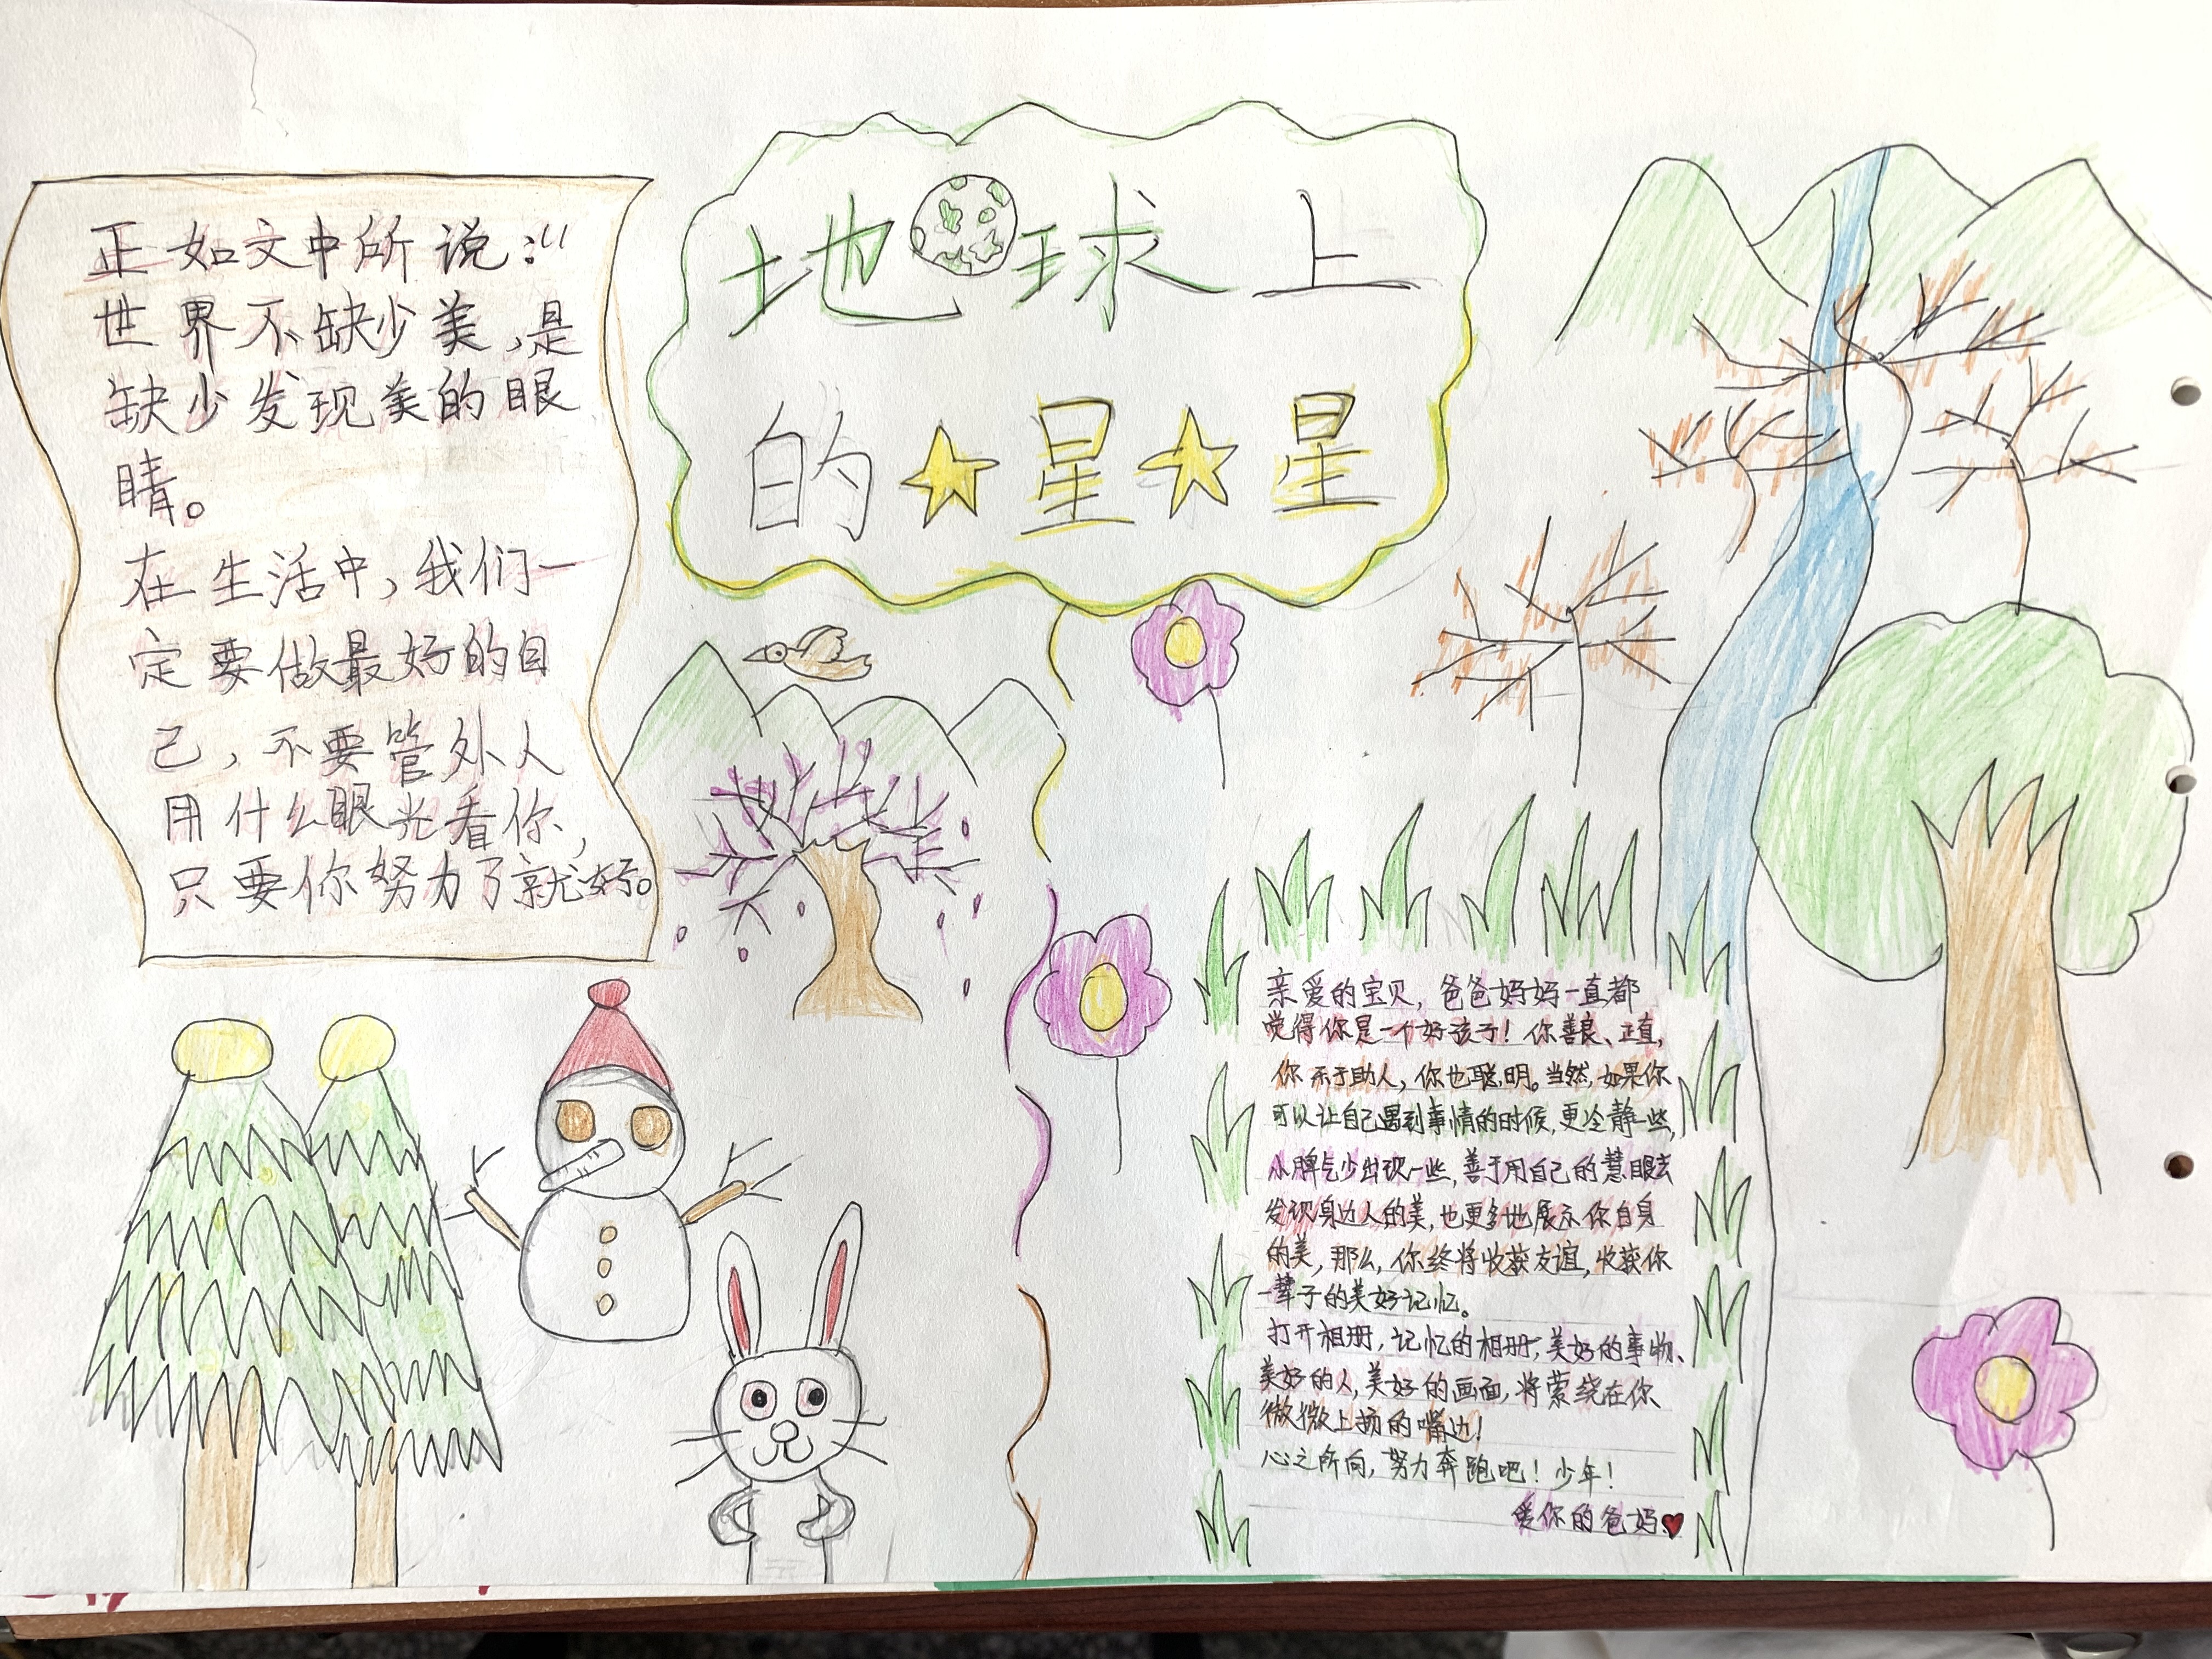 地球上
的星星
正如文中所说:“
世界不缺少美,是
缺少发现美的眼
睛。
在生活中,我们一
定要做最好的自
己,不要管外人
用什么眼光看你,
只要你努力了就好。
亲爱的宝贝,爸爸妈妈一直都
觉得你是一个好孩子!你善良、正直,
你乐于助人,你也聪明。当然,如果你
可以让自己遇到事情的时候,更冷静一些,
小脾气少出现一些,善于用自己的慧眼去
发现身边人的美,也更多地展示你自身
的美,那么,你终将收获友谊,收获你
一辈子的美好记忆。
打开相册,记忆的相册,美好的事物、
美好的人,美好的画面,将萦绕在你
微微上扬的嘴边!
心之所向,努力奔跑吧!少年!
爱你的爸妈